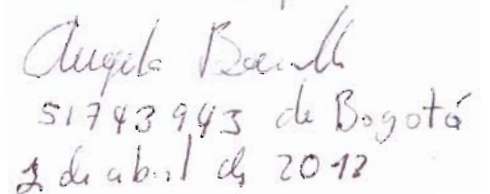 Angela
51743943 de Bogotá
2 de abril de 2012